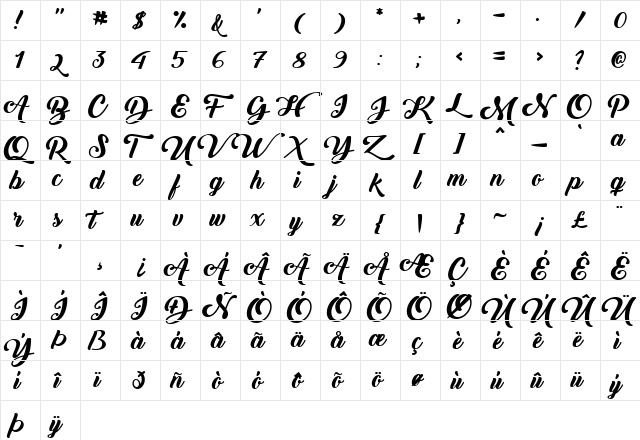 ! " # $ % & ' ( ) * + , - . / 0
1 2 3 4 5 6 7 8 9 : ; < = > ? @
A B C D E F G H I J K L M N O P
Q R S T U V W X Y Z [ ] ^ _ ` a
b c d e f g h i j k l m n o p q
r s t u v w x y z { | } ~ ¡ £ ¨
¯ ´ ¸ ı À Á Â Ã Ä Å Æ Ç È É Ê Ë
Ì Í Î Ï Ð Ñ Ò Ó Ô Õ Ö Ø Ù Ú Û Ü
Ý Þ ß à á â ã ä å æ ç è é ê ë ì
í î ï ð ñ ò ó ô õ ö ø ù ú û ü ý
þ ÿ